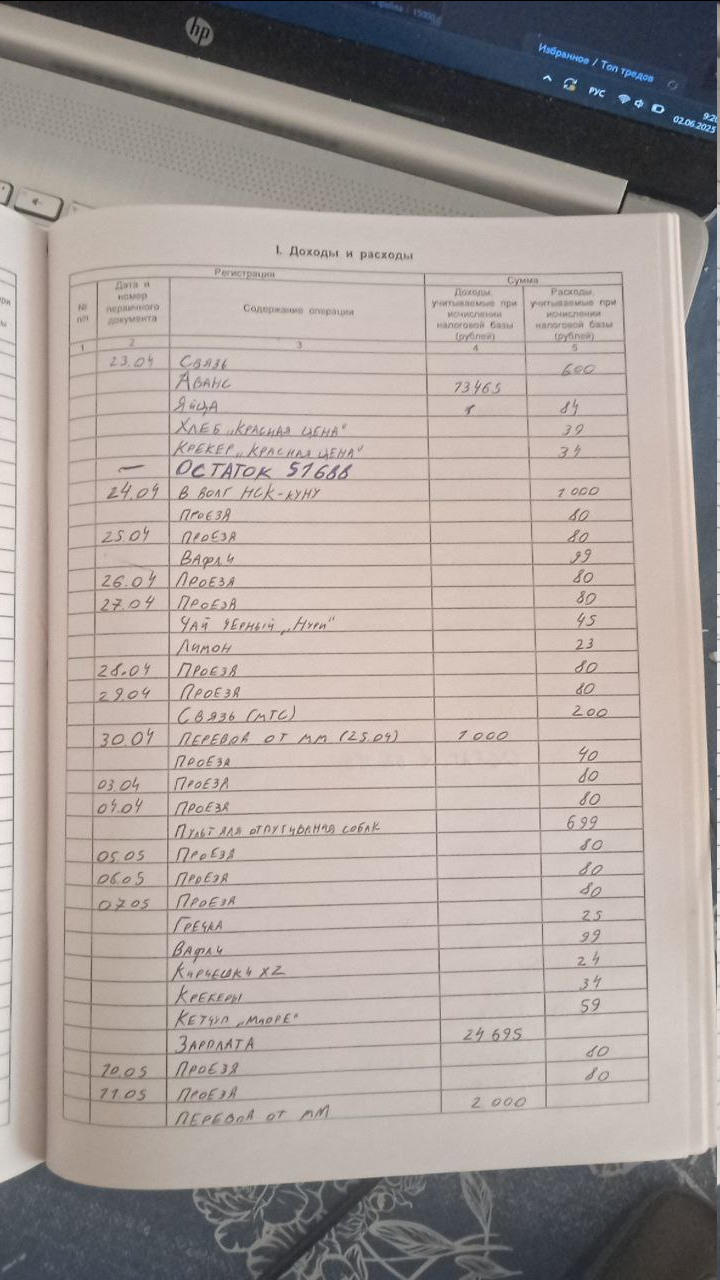 15000
hp
Избранное / Топ тредов
РУС
9:20
02.06.2025
I. Доходы и расходы
Регистрация Сумма
№ п/п Дата и номер первичного документа Содержание операции Доходы, учитываемые при исчислении налоговой базы (рублей) Расходы, учитываемые при исчислении налоговой базы (рублей)
1 2 3 4 5
23.04 Связь 600
Аванс 13465
Яйца 84
Хлеб „Красная цена" 39
Крекер „Красная цена" 34
— Остаток 51688
24.04 В Волг НСК-куну 1000
Проезд 80
25.04 Проезд 80
Вафли 99
26.04 Проезд 80
27.04 Проезд 80
Чай чёрный „Нури" 45
Лимон 23
28.04 Проезд 80
29.04 Проезд 80
Связь (МТС) 200
30.04 Перевод от ММ (25.04) 1000
Проезд 40
03.04 Проезд 80
04.04 Проезд 80
Пульт для отпугивания собак 699
05.05 Проезд 80
06.05 Проезд 80
07.05 Проезд 80
Гречка 25
Вафли 99
Кириешки х2 24
Крекеры 34
Кетчуп „Mиоре" 59
Зарплата 24695
10.05 Проезд 80
11.05 Проезд 80
Перевод от ММ 2000